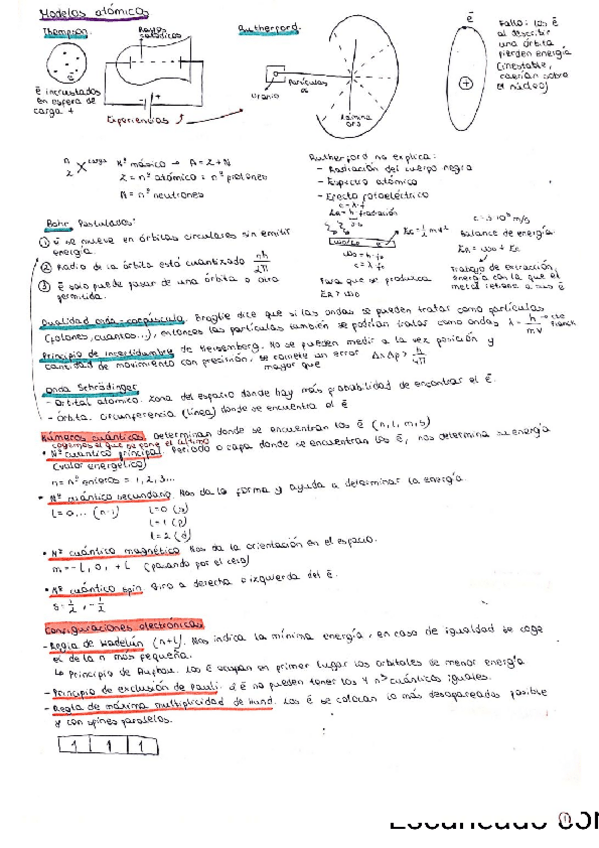 Modelos atómicos
Thompson.
Rayos catódicos
Rutherford.
ē
Fallo: los ē
al describir
una órbita
pierden energía
(inestable,
caerían sobre
el núcleo)
+
ē incrustados
en esfera de
carga +
Experiencias
Uranio
Partículas
α
Lámina
oro
X carga
Nº másico → A = Z + N
Z = nº atómico = nº protones
N = nº neutrones
Rutherford no explica:
- Radiación del cuerpo negro
- Espectro atómico
- Efecto fotoeléctrico
Balance de energía
Trabajo de extracción,
energía con la que el
metal retiene a sus ē
Para que se produzca
Bohr. Postulados:
① ē se mueve en órbitas circulares sin emitir
energía.
② Radio de la órbita está cuantizado nh/2π
③ ē solo puede pasar de una órbita a otra
permitida.
Dualidad onda-corpúsculo. Broglie dice que si las ondas se pueden tratar como partículas
(fotones, cuantos...), entonces las partículas también se podrían tratar como ondas λ = h/mv → cte Planck
Principio de incertidumbre de Heisenberg. No se pueden medir a la vez posición y
cantidad de movimiento con precisión, se comete un error mayor que Δx Δp > h/4π
Onda Schrödinger
- Orbital atómico. Zona del espacio donde hay más probabilidad de encontrar el ē.
- Órbita. Circunferencia (línea) donde se encuentra el ē
Números cuánticos. Determinan donde se encuentran los ē (n, l, m, s)
cogemos el que se pone el último
• Nº cuántico principal. Periodo o capa donde se encuentran los ē, nos determina su energía
(valor energético)
n = nº enteros = 1, 2, 3...
• Nº cuántico secundario. Nos da la forma y ayuda a determinar la energía.
l = 0, ... (n-1)
l = 0 (s)
l = 1 (p)
l = 2 (d)
• Nº cuántico magnético. Nos da la orientación en el espacio.
m = -l, 0, +l (pasando por el cero)
• Nº cuántico spin. Giro a derecha o izquierda del ē.
s = 1/2, -1/2
Configuraciones electrónicas
- Regla de Madelun (n+l). Nos indica la mínima energía, en caso de igualdad se coge
el de la n más pequeña.
↳ Principio de Aufbau. Los ē ocupan en primer lugar los orbitales de menor energía
- Principio de exclusión de Pauli. 2 ē no pueden tener los 4 nºs cuánticos iguales.
- Regla de máxima multiplicidad de Hund. Los ē se colocan lo más desapareados posible
y con spines paralelos.
1 1 1